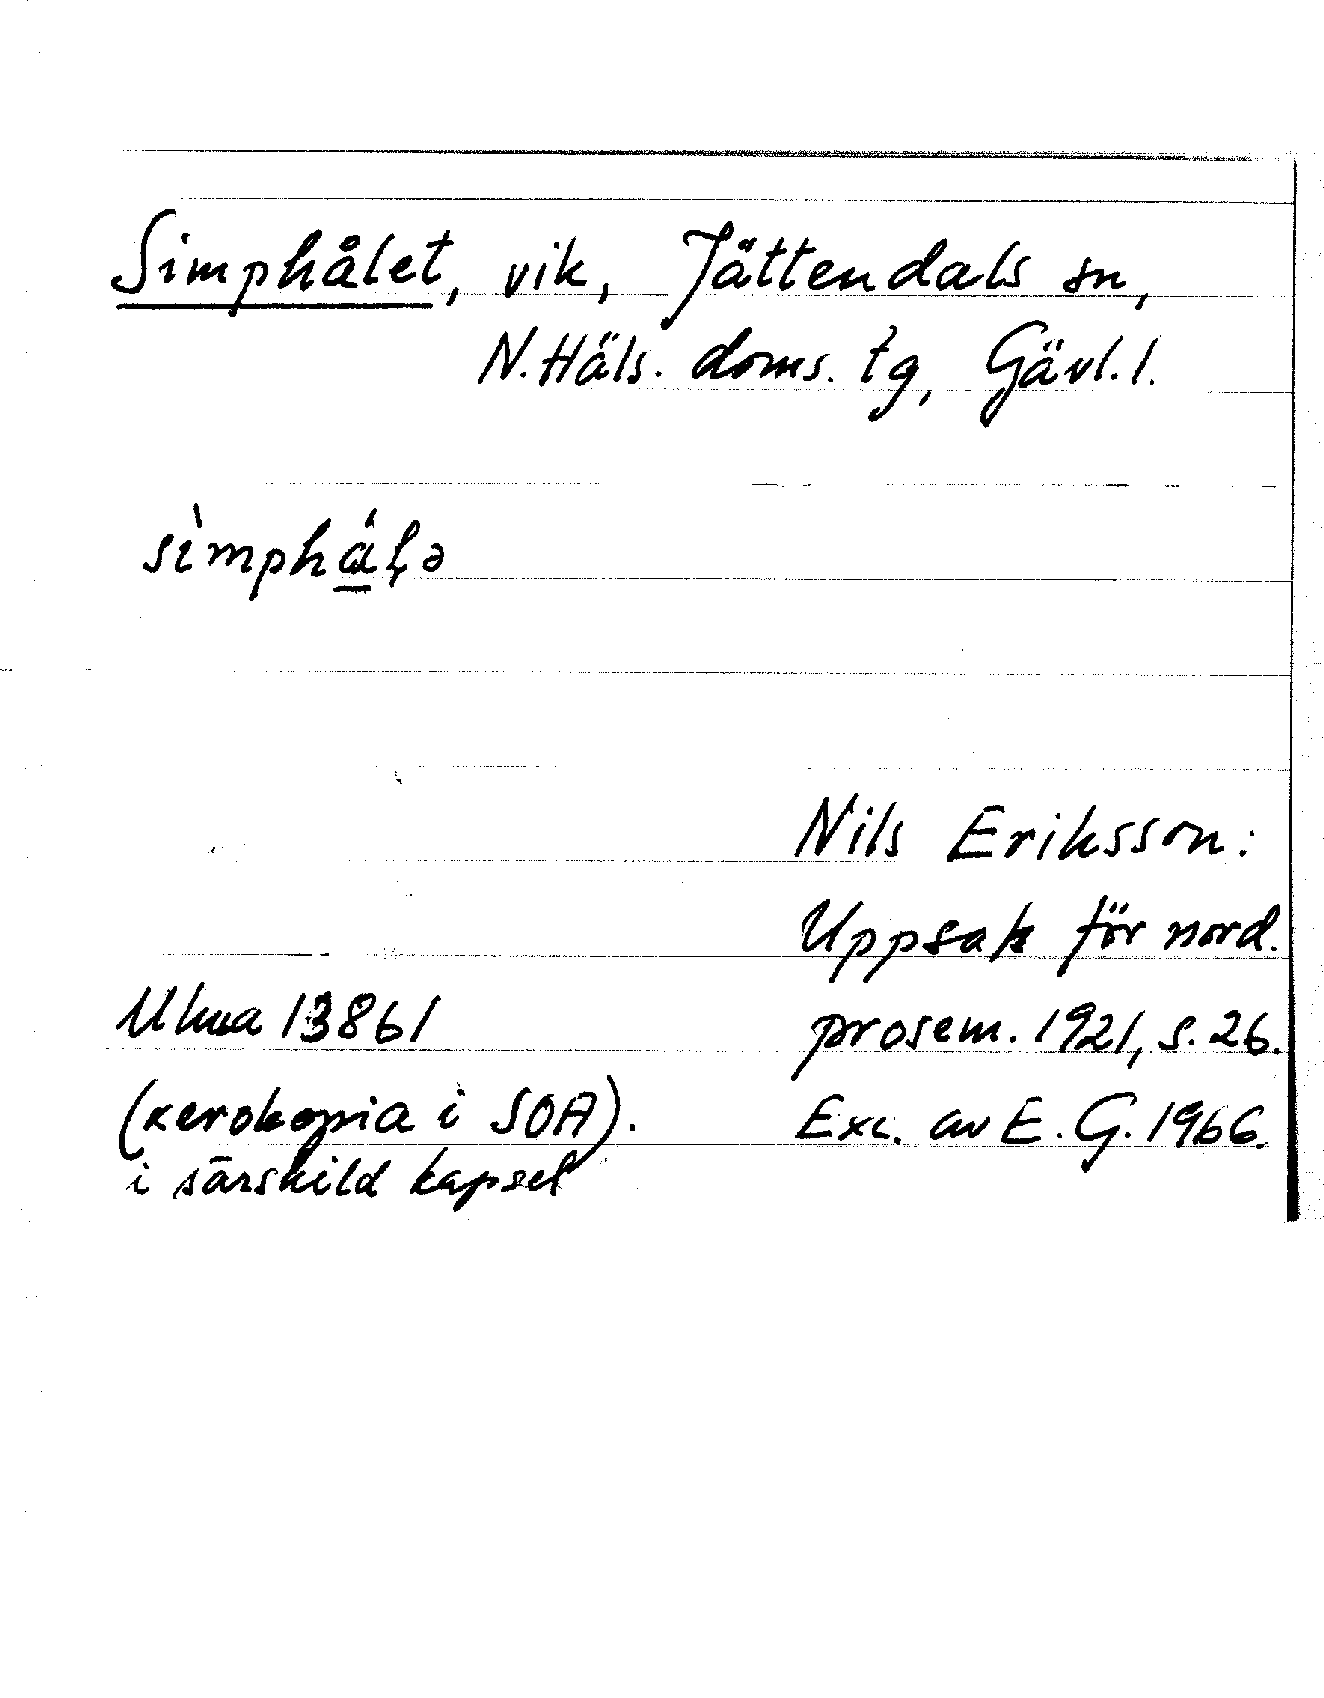 Simphålet, vik, Jättendals sn,
N. Häls. doms. tg, Gävl. l.
sìmpháļə
Nils Eriksson:
Uppsats för nord.
prosem. 1921, s. 26.
Ulma 13861
(xerokopia i SOA).
Exc. av E. G. 1966.
i särskild kapsel